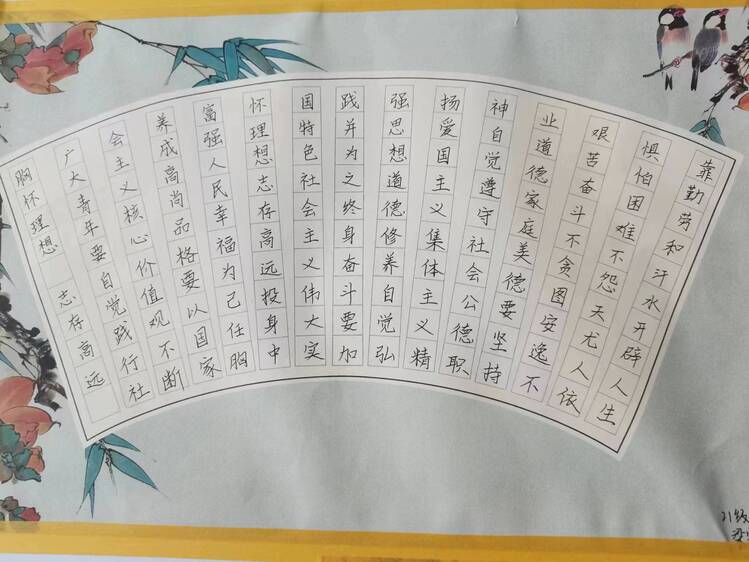 胸怀理想 志存高远
广大青年要自觉践行社
会主义核心价值观不断
养成高尚品格要以国家
富强人民幸福为己任胸
怀理想志存高远投身中
国特色社会主义伟大实
践并为之终身奋斗要加
强思想道德修养自觉弘
扬爱国主义集体主义精
神自觉遵守社会公德职
业道德家庭美德要坚持
艰苦奋斗不贪图安逸不
惧怕困难不怨天尤人依
靠勤劳和汗水开辟人生
21级